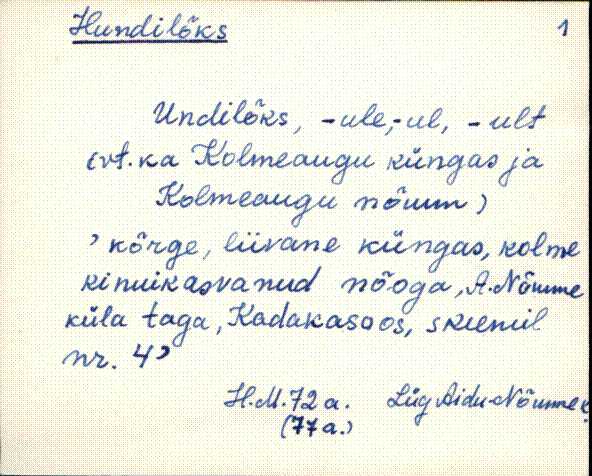 Hundilõks
1
Undilõks, -ule, -ul, -ult
(vt. ka Kolmeaugu küngas ja
Kolmeaugu nõmm)
' kõrge, liivane küngas, kolme
kinnikasvanud nõoga, A.-Nõmme
küla taga, Kadakasoos, skeemil
nr. 4'
H.M. 72 a. Lüg Aidu-Nõmme k.
(77 a.)